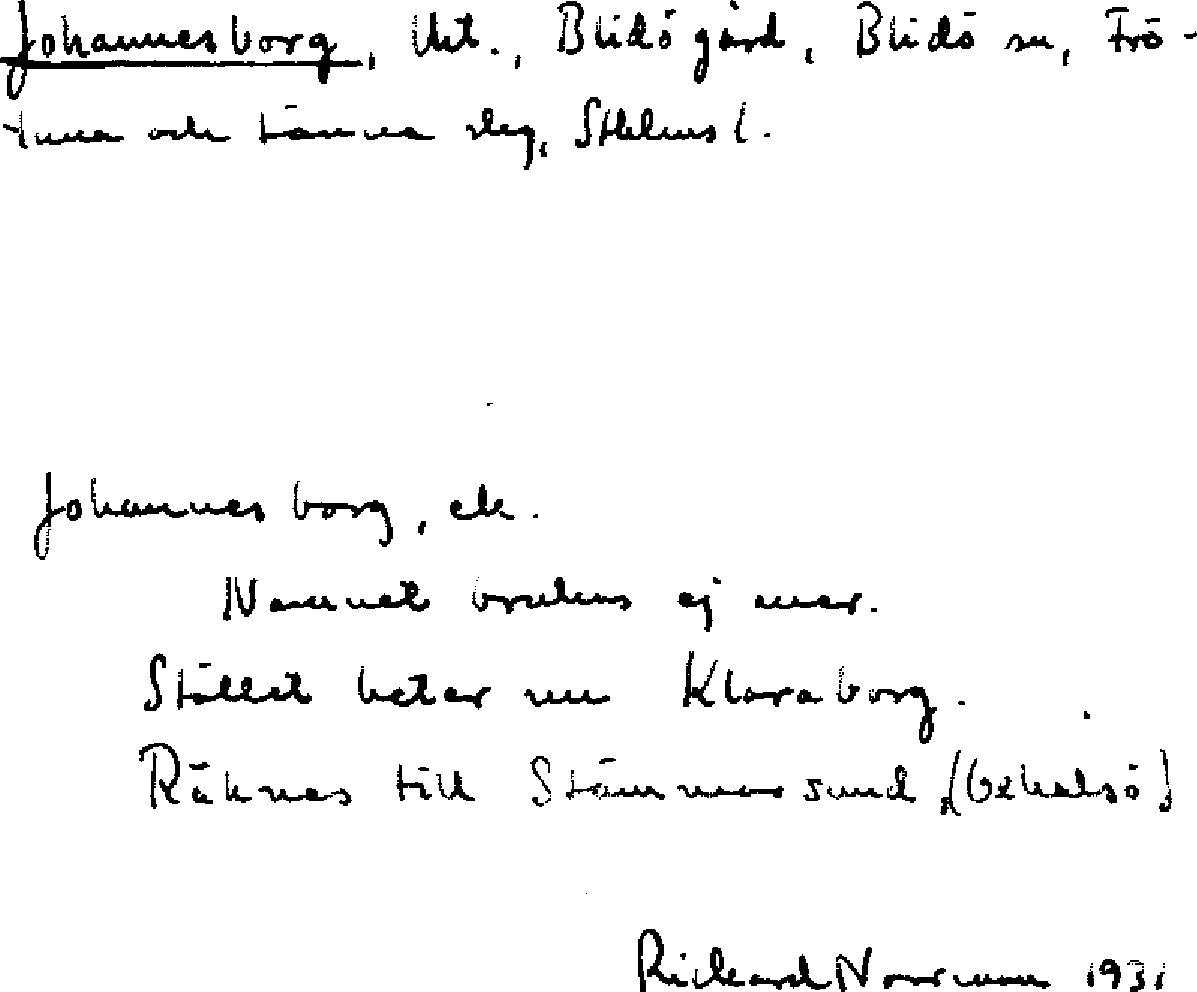 Johannesborg, lht., Blidö gård, Blidö sn, Frö-
tuna och Länna slg, Sthlms l.
Johannesborg, ek.
Namnet brukas ej mer.
Stället heter nu Klaraborg.
Räknas till Stämmarsund (Oxhalsö)
Rickard Norrman 1931